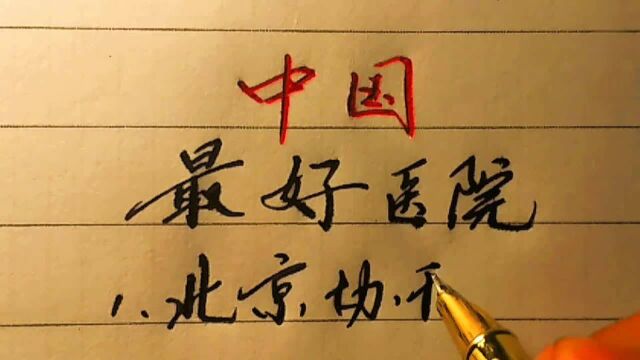 中国
最好医院
1.北京协